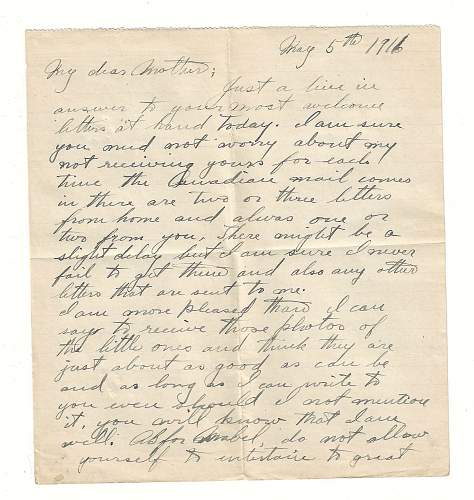 May 5th 1916
My dear Mother;
Just a line in
answer to your most welcome
letters at hand today. I am sure
you need not worry about my
not receiving yours for each
time the Canadian mail comes
in there are two or three letters
from home and alwas one or
two from you. There might be a
slight delay but I am sure I never
fail to get them and also any other
letters that are sent to me.
I am more pleased than I can
say to receive those photos of
the little ones and think they are
just about as good as can be
and as long as I can write to
you even should I not mention
it, you will know that I am
well. As for Mabel, do not allow
yourself to entertain to great